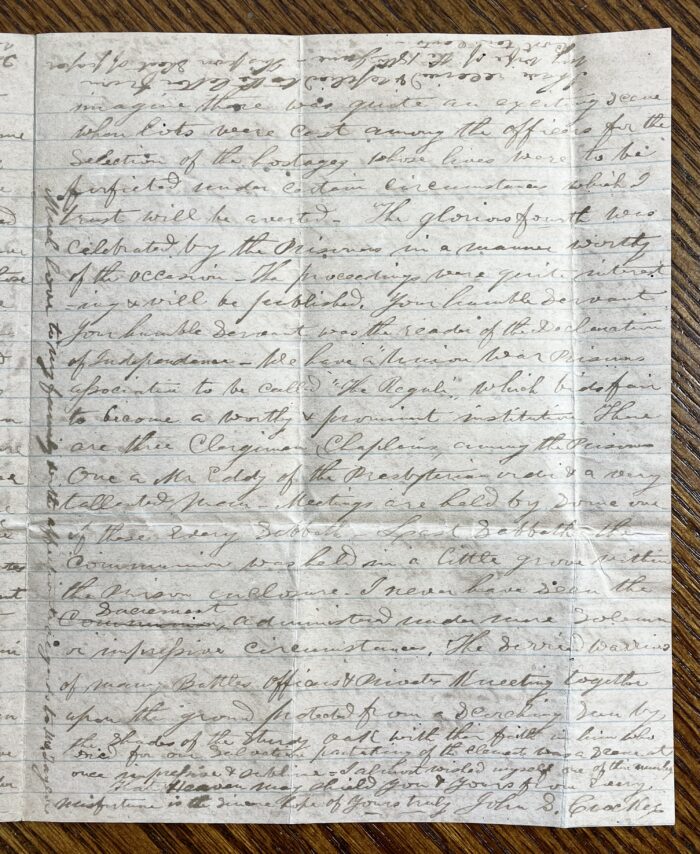 imagine there was quite an exciting scene
when lots were cast among the officers for the
Selection of the hostages whose lives were to be
forfeited under certain circumstances which I
trust will be averted - The glorious fourth was
celebrated by the Prisoners in a manner worthy
of the occasion - The proceedings were quite interest
-ing & will be published. Your humble Servant
Your humble Servant was the reader of the Declaration
of Independence - We have a "Union War Prisons
association to be called "The Reguli", which bids fair
to become a worthy & prominent institution There
are three Clergimen, Chaplains, among the Prisons
One a Mr Eddy of the Presbyterian order & a very
tallented man. Meetings are held by some one
of these every Sabbath. Last Sabbath the
Communion was held in a little grove within
the Prison enclosure. I never have seen the
Communion Sacrament administered under more Solemn
or impressive circumstances. The Warriors
of many Battles Officers & Privates Kneeting together
upon the ground Protected from a Scorching Sun by
the Shades of the Sturdy Oak with their faith in him who
died for our Salvation, partaking of the was a Scene at
once impressive & sublime - I almost wished myself one of the number
That Heaven may shield you & yours from every
misfortune is the sincere hope of yours truly John D.
Much love to my family with
I have received & to the letter from
of the 18th June - of paper